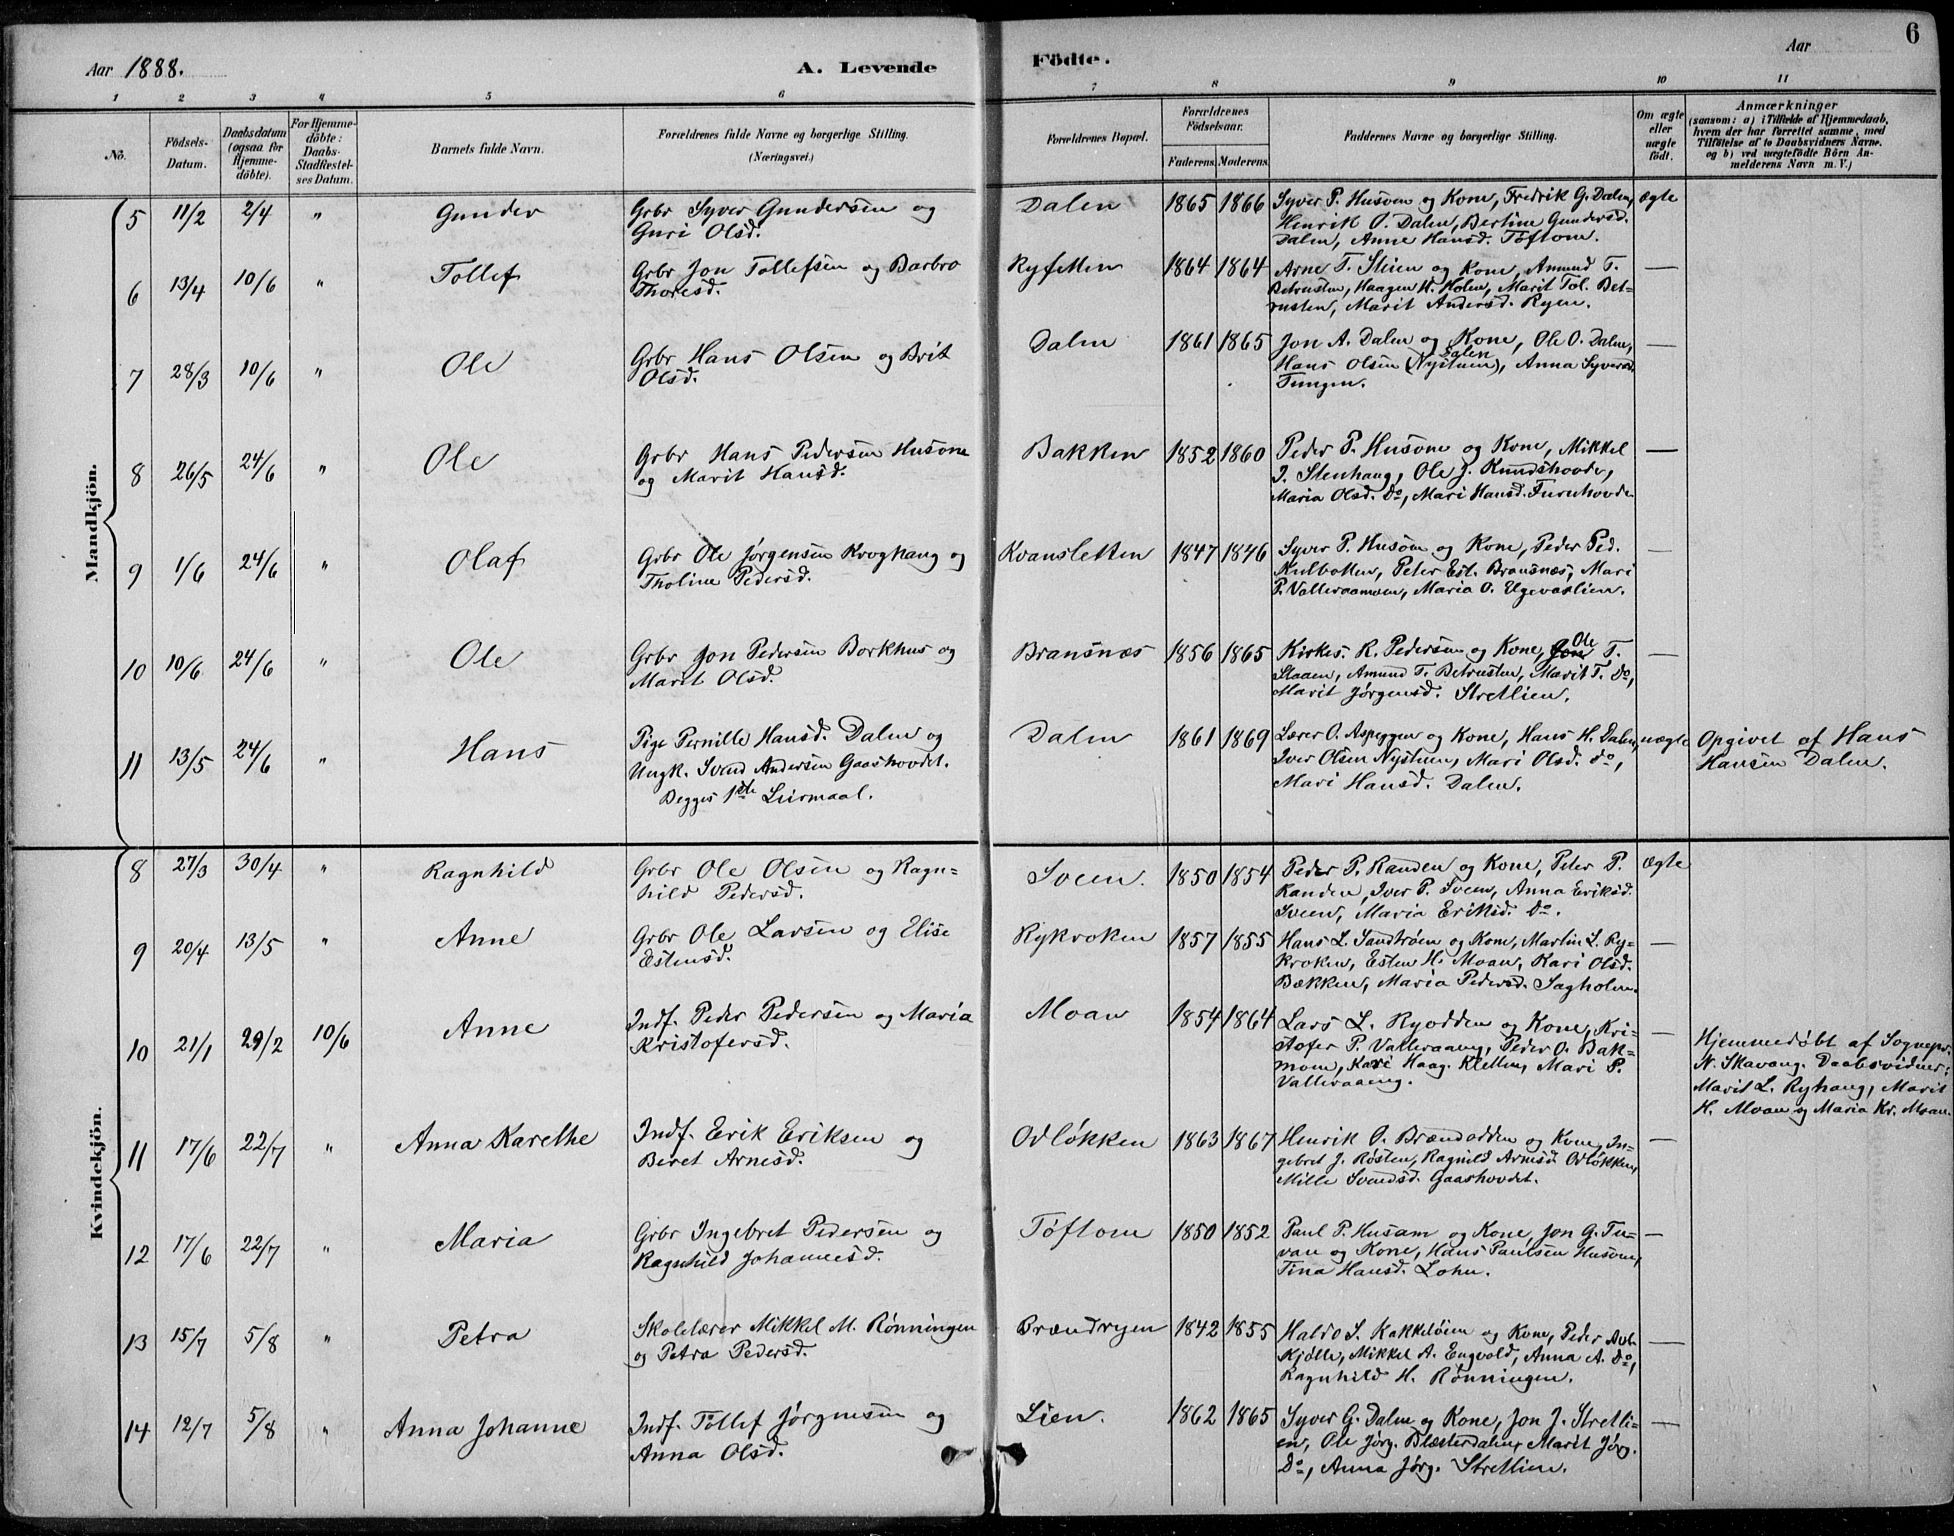 Aar 1888.
A. Levende
Födte.
Aar
6
1 2 3 4 5 6 7 8 9 10 11
No.
Födsels-Datum.
Daabsdatum (ogsaa for Hjemme-döbte).
For Hjemme-döbte: Daabs-Stadfæstel-ses Datum.
Barnets fulde Navn.
Forældrenes fulde Navne og borgerlige Stilling.
(Næringsvei.)
Forældrenes Bopæl.
Forældrenes Födselsaar.
Faderens. Moderens.
Faddernes Navne og borgerlige Stilling.
Om ægte eller uægte födt.
Anmærkninger
(saasom: a) i Tilfælde af Hjemmedaab, hvem der har forrettet samme, med Tilföielse af to Daabsvidners Navne. og b) ved uægtefödte Börn An-melderens Navn m. V.)
Mandkjön.
5 11/2 2/4 " Gunder
Grbr Syver Gundersen og
Guri Olsd.
Dalen 1865 1866
Syver P. Husom og Kone, Fredrik G. Dalen,
Henrik O. Dalen, Bertine Gundersd.
Dalen, Anne Hansd. Tøftom.
ægte
6 13/4 10/6 " Tollef
Grbr Jon Tollefsen og Barbro
Thoresd.
Ryfetten 1864 1864
Arne T. Stien og Kone, Amund T.
Betrusten, Haagen H. Holen, Marit Tol. Bet=
rusten, Marit Andersd. Ryen.
—
7 28/3 10/6 " Ole
Grbr Hans Olsen og Brit
Olsd.
Dalen 1861 1865
Jon A. Dalen og Kone, Ole O. Dalen,
Dalen
Hans Olsen (Nystuen), Anna Syversd.
Tungen.
—
8 26/5 24/6 " Ole
Grbr Hans Pedersen Husom
og Marit Hansd.
Bakken 1852 1860
Peder P. Husom og Kone, Mikkel
J. Stenhaug, Ole J. Knudshovde,
Maria Olsd. Do, Mari Hansd. Furuhovde
—
9 1/6 24/6 " Olaf
Grbr Ole Jørgensen Kroghaug og
Tholine Pedersd.
Kvansletten 1847 1846
Syver P. Husom og Kone, Peder Ped.
Kulbotten, Peter Est. Bransnæs, Mari
P. Valleraamoen, Maria O. Elgevaslien.
—
10 10/6 24/6 " Ole
Grbr Jon Pedersen Borkhus og
Marit Olsd.
Bransnæs 1856 1865
Kirkes. R. Pedersen og Kone, Ole T.
Staaen, Amund T. Betrusten, Marit T. Do,
Marit Jørgensd. Stretlien.
—
11 13/5 24/6 " Hans
Pige Pernille Hansd. Dalen og
Ungk. Svend Andersen Gaashovdet.
Begges 1ste Leiermaal.
Dalen 1861 1869
Lærer O. Aspeggen og Kone, Hans H. Dalen,
Iver Olsen Nystuen, Mari Olsd. do,
Mari Hansd. Dalen.
uægte
Opgivet af Hans
Hansen Dalen.
Kvindekjön.
8 27/3 30/4 " Ragnhild
Grbr Ole Olsen og Ragn=
hild Pedersd.
Sveen. 1850 1854
Peder P. Randen og Kone, Peter P.
Randen, Iver P. Sveen, Anna Eriksd.
Sveen, Maria Eriksd. Do.
ægte
9 20/4 13/5 " Anne
Grbr Ole Larsen og Elise
Estensd.
Rykroken 1857 1855
Hans L. Sandtrøen og Kone, Martin L. Ry-
kroken, Esten H. Moan, Kari Olsd.
Bækken, Maria Pedersd. Sagholen.
—
10 21/1 29/2 10/6 Anne
Indf. Peder Pedersen og Maria
Kristofersd.
Moan 1854 1864
Lars L. Ryodden og Kone, Kri-
stofer P. Valleraaeng, Peder O. Bak-
mom, Kari Haag. Kletten, Mari P.
Valleraaeng.
—
Hjemmedøbt af Sognepr.
N. Skavang. Daabsvidner:
Marit L. Ryhaug, Marit
H. Moan og Maria Kr. Moan.
11 17/6 22/7 " Anna Karethe
Indf. Erik Eriksen og
Beret Arnesd.
Odløkken 1863 1867
Henrik O. Brændodden og Kone, In-
gebret J. Røsten, Ragnild Arnesd. Odløkken,
Mille Svendsd. Gaashovdet.
—
12 17/6 22/7 " Maria
Grbr Ingebret Pedersen og
Ragnhild Johannesd.
Tøftom 1850 1852
Paul P. Husom og Kone, Jon G. Tu-
van og Kone, Hans Paulsen Husom,
Tina Hansd. Lohn.
—
13 15/7 5/8 " Petra
Skolelærer Mikkel M. Rønningen
og Petra Pedersd.
Brændryen 1842 1855
Haldo S. Kakkeløien og Kone, Peder
Kjølle, Mikkel A. Engvold, Anna A. Do,
Ragnhild H. Rønningen.
—
14 12/7 5/8 " Anna Johanne
Indf. Tollef Jørgensen og
Anna Olsd.
Lien. 1862 1865
Syver G. Dalen og Kone, Jon J. Stretli-
en, Ole Jørg. Blæsterdalen, Marit Jørg.
Do, Anna Jørg. Stretlien.
—